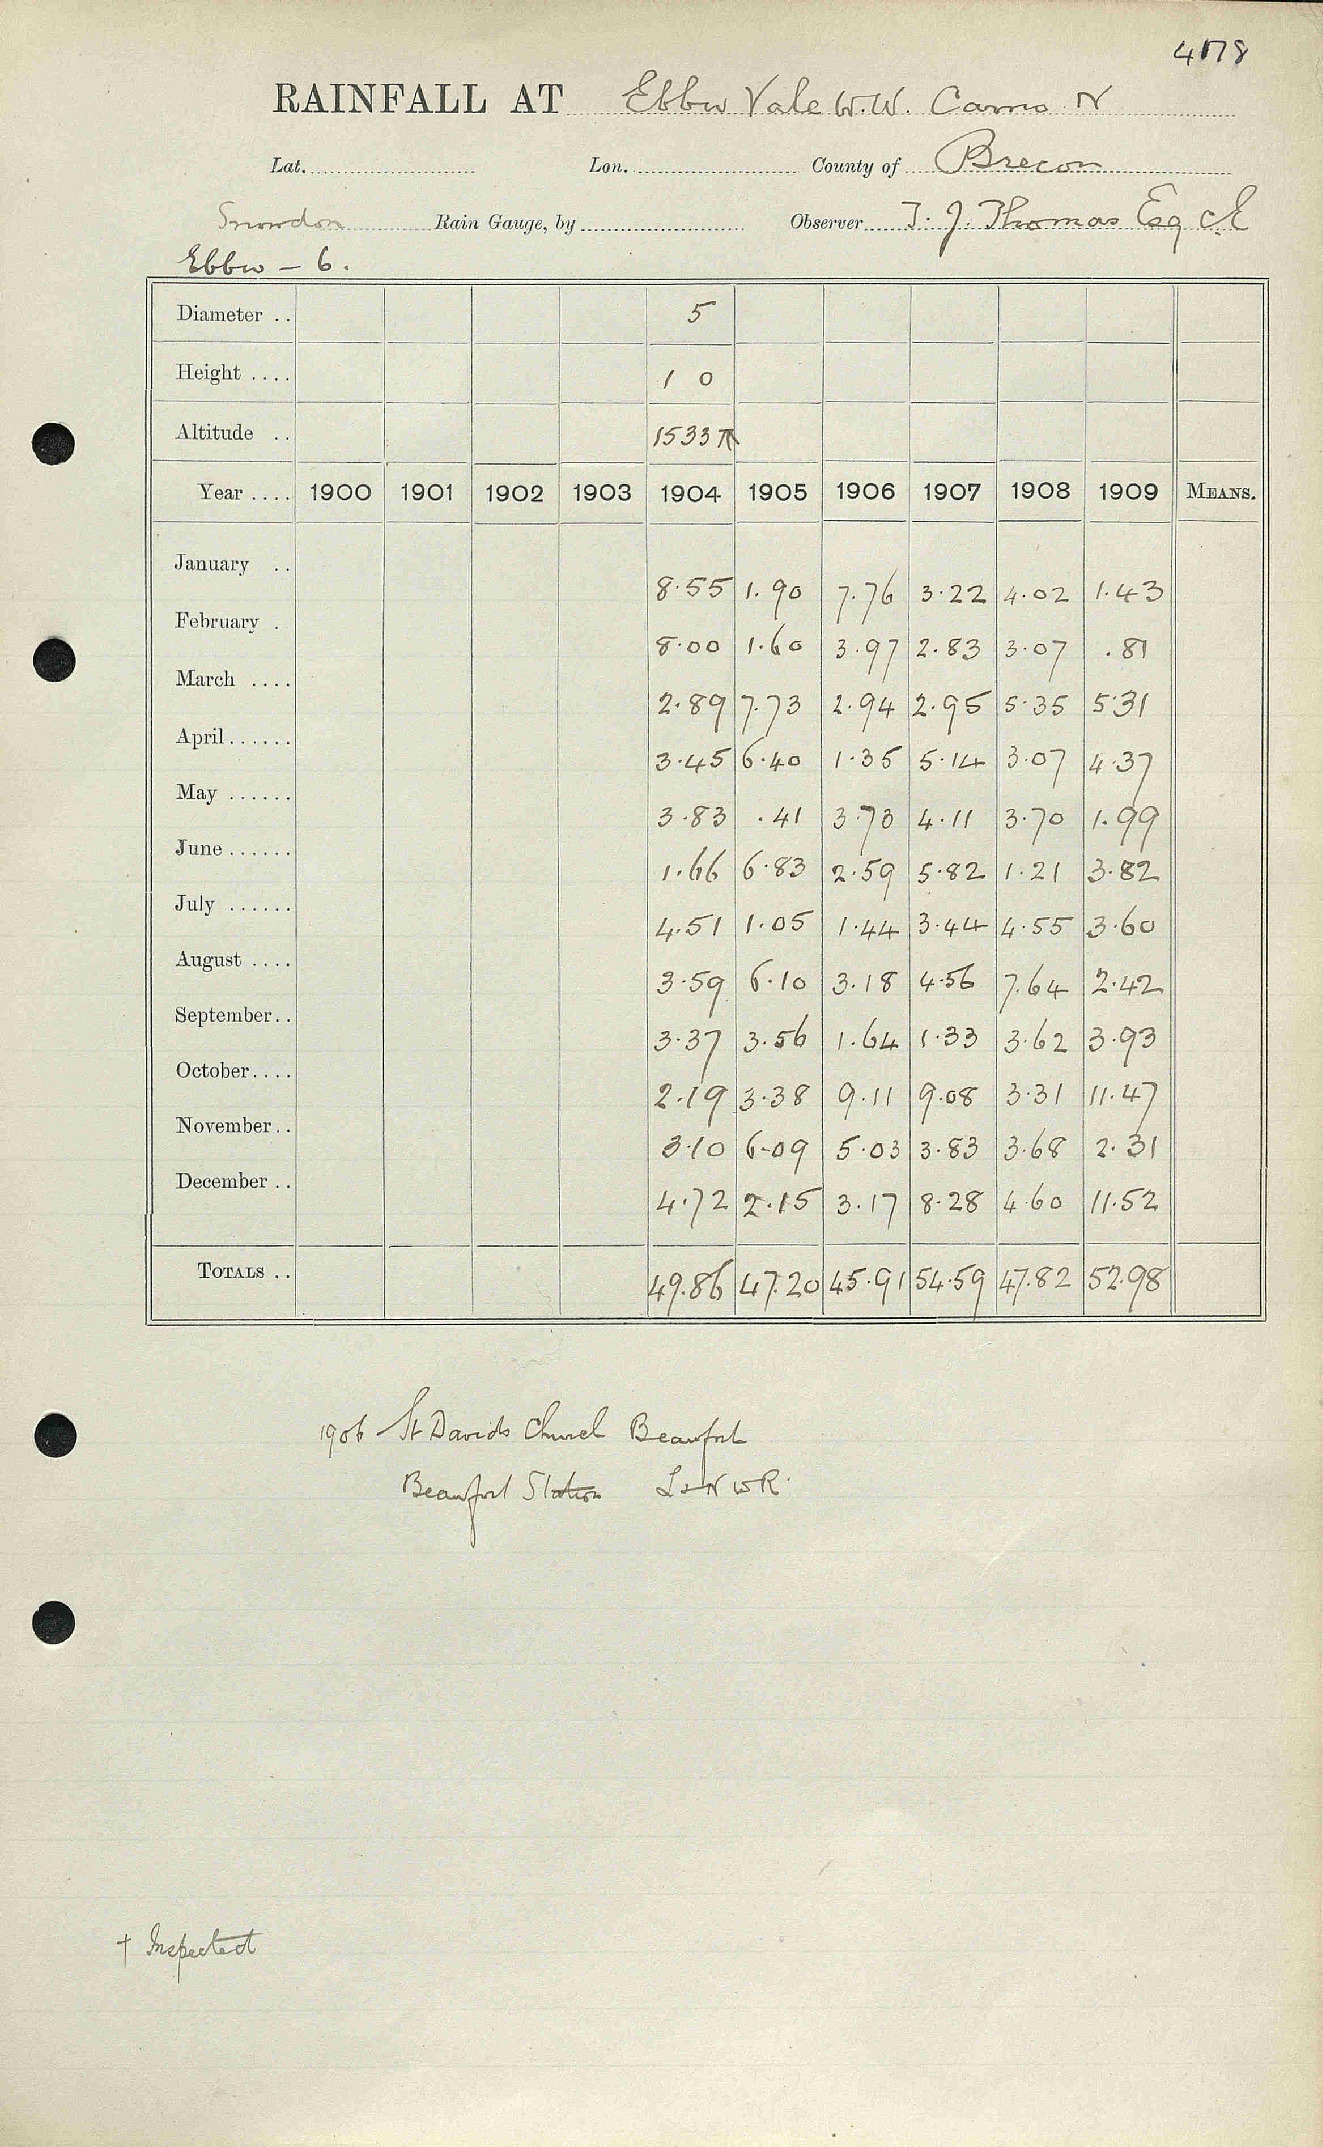 4178
RAINFALL AT Ebbw Vale W.W. Carno N
Lat. Lon. County of Brecon
Snowdon Rain Gauge, by Observer T. J. Thomas Esq C.E
Ebbw – 6.
Diameter .. 5
Height .... 1 0
Altitude .. 1533
Year .... 1900 1901 1902 1903 1904 1905 1906 1907 1908 1909 MEANS.
January .. 8.55 1.90 7.76 3.22 4.02 1.43
February . 8.00 1.60 3.97 2.83 3.07 .81
March .... 2.89 7.73 2.94 2.95 5.35 5.31
April...... 3.45 6.40 1.35 5.14 3.07 4.37
May ...... 3.83 .41 3.73 4.11 3.70 1.99
June...... 1.66 6.83 2.59 5.82 1.21 3.82
July ...... 4.51 1.05 1.44 3.44 4.55 3.60
August .... 3.59 6.10 3.18 4.56 7.64 2.42
September.. 3.37 3.56 1.64 1.33 3.62 3.93
October.... 2.19 3.38 9.11 9.08 3.31 11.47
November.. 3.10 6.09 5.03 3.83 3.68 2.31
December .. 4.72 2.15 3.17 8.28 4.60 11.52
TOTALS .. 49.86 47.20 45.91 54.59 47.82 52.98
1906 St Davids Church Beaufort
Beaufort Station L & N W R.
† Inspected